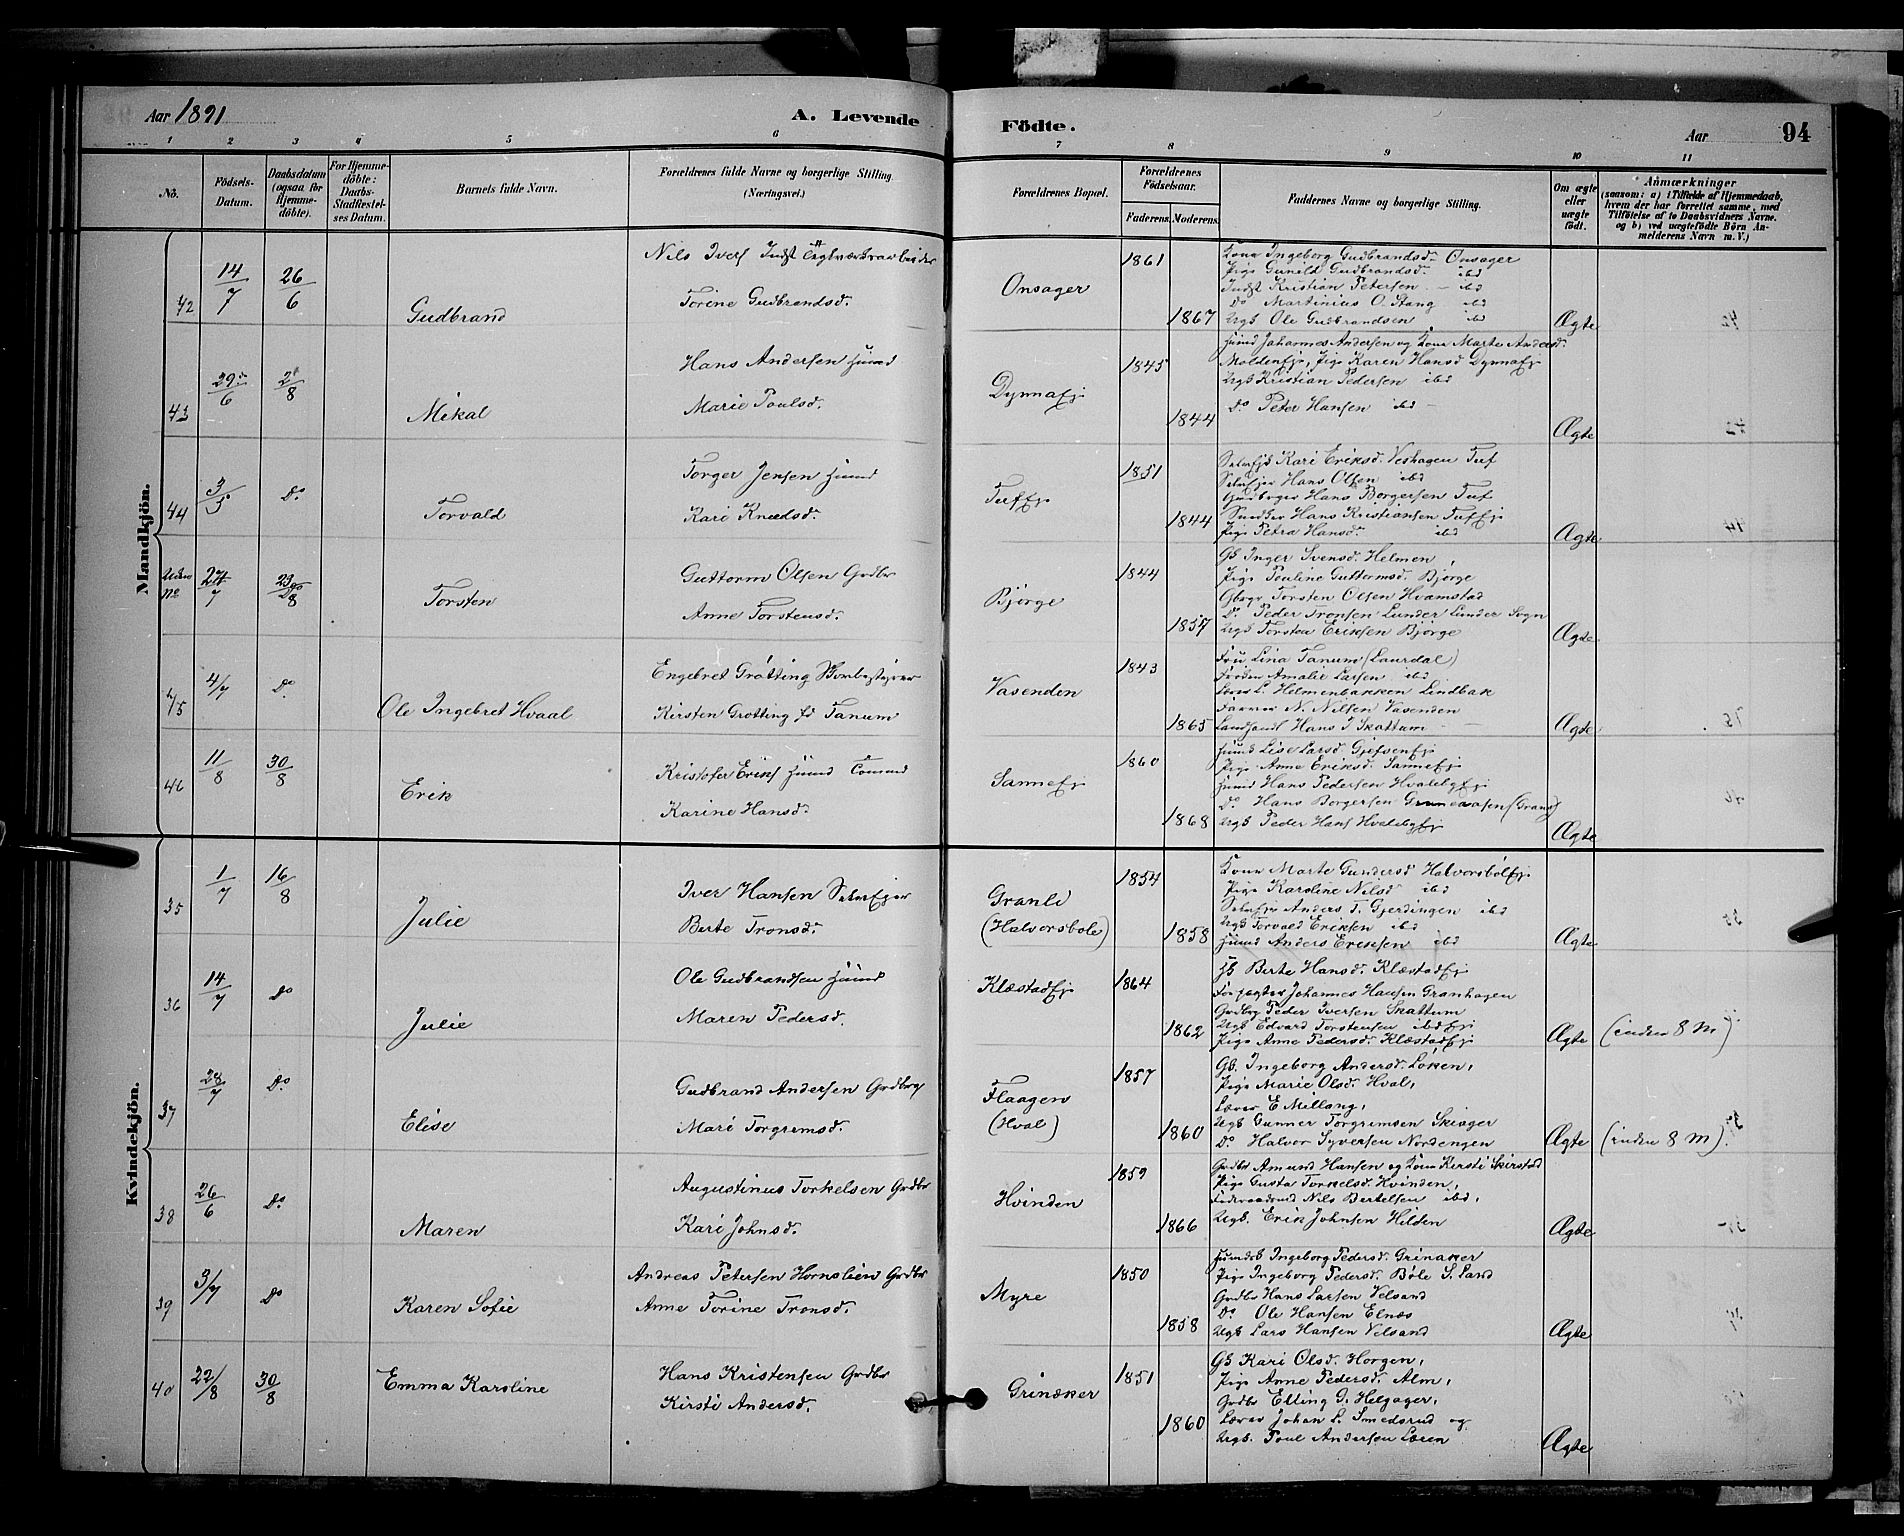 Aar 1891 A. Levende Födte. Aar 94
1 2 3 4 5 6 7 8 9 10 11
No. Födsels-Datum. Daabsdatum (ogsaa for Hjemme-döbte). For Hjemme-döbte: Daabs-Stadfæstel-ses Datum. Barnets fulde Navn. Forældrenes fulde Navne og borgerlige Stilling. (Næringsvei.) Forældrenes Bopæl. Forældrenes Födselsaar. Faderens. Moderens. Faddernes Navne og borgerlige Stilling. Om ægte eller uægte födt. Anmærkninger (saasom: a) i Tilfælde af Hjemmedaab, hvem der har forrettet samme, med Tilföielse af to Daabsvidners Navne. og b) ved uægtefödte Börn An-melderens Navn m. V.)
Mandkjön.
42 14/7 26/6 Gudbrand
Nils Ivers Indst
Torine Gudbrandsd.
Onsager 1861 1867
Kone Ingeborg Gudbrandsd. Onsager
Pige Gunild Gudbrandsd. ibd
Indst Kristian Petersen ibd
Do Martinius O. Stang ibd
Ugk Ole Gudbrandsen ibd
Ægte
43 29/6 2/8 Mikal
Hans Andersen Husmd
Marie Poulsd.
Dynnaej. 1845 1844
Husmd Johannes Andersen og Kone Marte Andersd.
Moldenej. Pige Karen Hansd Dynnaej
Ugk Kristian Pedersen ibd
Do Peter Hansen ibd
Ægte
44 3/5 Do Torvald
Torger Jensen Husmd
Kari Knudsd.
Tufej. 1851 1844
Selvejsk Kari Eriksd. Veshagen Tuf
Selvejer Hans Olsen ibd
Hans Borgersen Tuf
Snedker Hans Kristiansen Tufej.
Pige Petra Hansd. ibd
Ægte
Uden No 27/7 23/8 Torsten
Guttorm Olsen Grdbr
Anne Torstensd.
Bjørge 1844 1857
Gk Inger Svensd. Helmen
Pige Pouline Guttormsd. Bjørge
Gbrgr Torsten Olsen Hvamstad
Do Peder Tronsen Lunder Lunder Sogn
Ugk Torsten Eriksen Bjørge
Ægte
45 4/7 Do Ole Ingebret Hvaal
Engebret Grötting
Kirsten Grotting fd Tanum
Vasenden 1843 1865
Fru Lina Tanum (Laurdal)
Frøken Amalie Larsen ibd
Lærer L. Helmenbakken Lindbak
Farver N. Nilsen Vasenden
Landhand Hans J. Skattum
Ægte
46 11/8 30/8 Erik
Kristofer Eriks Husmd
Karine Hansd.
Sanneej. 1860 1868
Husmd Lise Larsd. Gjefsenej
Pige Anne Eriksd. Sanneej
Husmd Hans Pedersen Hvalebyej
Do Hans Borgersen (Gran)
Ugk Peder Hans Hvalebyej
Ægte
Kvindekjön.
35 1/7 16/8 Julie
Iver Hansen Selvejer
Berte Tronsd.
Granli (Halvorsbole) 1854 1858
Kone Marte Gundersd Halvorsbölej
Pige Karoline Nilsd ibd
Selvejer Anders T. Gjerdingen ibd
Ugk Torvald Eriksen ibd
Husmd Anders Eriksen ibd
Ægte
36 14/7 Do Julie
Ole Gudbrandsen Husmd
Maren Pedersd.
Klæstadej. 1864 1862
Gk Berte Hansd. Klæstadej
Forpagter Johannes Hansen Granhagen
Grdbrg Peder Iversen Skattum
Ugk Edvard Torstensen ibd ej
Pige Anne Pedersd. Klæstadej
Ægte (inden 8 M)
37 28/7 Do Elise
Gudbrand Andersen Grdbrg
Mari Torgrimsd.
Flaagen (Hval) 1857 1860
Gk. Ingeborg Andersd. Løken,
Pige Marie Olsd. Hval,
Lærer E Millang,
Ugk Gunner Torgrimsen Skiager
Do Halvor Syversen Nordengen
Ægte (inden 8 M).
38 26/6 Do Maren
Augustinus Torkelsen Grdbr
Kari Johnsd.
Hvinden 1859 1866
Grdbr Amund Hansen og Kone Kirsti Skirstad
Pige Gusta Torkelsd. Hvinden,
Föderaadsmd Nils Bertelsen ibd,
Ugk. Erik Johnsen Hilden
Ægte
39 3/7 Do Karen Sofie
Andreas Petersen Hornslien Grdbr
Anne Torine Tronsd.
Myre 1850 1858
Husmdsk Ingeborg Pedersd. Grinaker
Pige Ingeborg Pedersd. Bøle S. Land
Grdbr Hans Larsen Velsand
Do Ole Hansen Elnæs
Ugk Lars Hansen Velsand
Ægte
40 22/8 30/8 Emma Karoline
Hans Kristensen Grdbr
Kirsti Andersd.
Grinaker 1851 1860
Gk Kari Olsd. Horgen,
Pige Anne Pedersd. Alm,
Grdbr Elling G. Helgager,
Lærer Johan L. Smedsrud og
Ugk. Poul Andersen Løken
Ægte